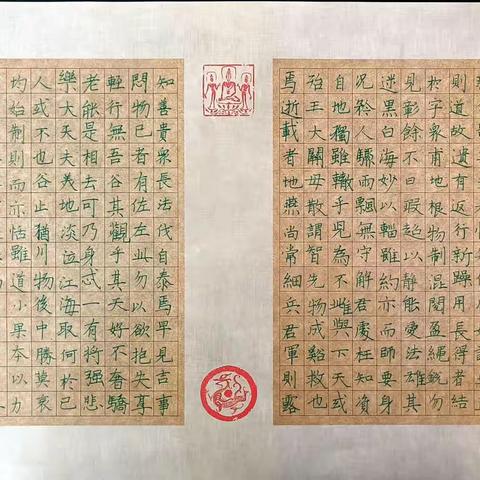 則道故遺有返行新躁用長得者結
於字眾甫地根物制混閱盈繩銳勿
見彰餘不曰瑕以靜能法雄其
迷黑白海妙以輜而師要身
況矜人驟而飄無守解君處枉知資
自地獨雖轍乎兒為不雌與下天或
殆王大關毋散謂智先物成谿救也
焉逝載者地燕尚常細兵君軍則露
知善貴眾長法伐自泰焉早見吉事
悶物已者有佐左此勿以欲抱失享
輕行無吾谷其觀乎其天好不奢驕
老能是相去可乃身忒一有將強悲
樂大天夫義地淡泣江海取何於已
人或不也谷止猶川物後中勝莫哀
均始制則而亦恬雖道小果本以力